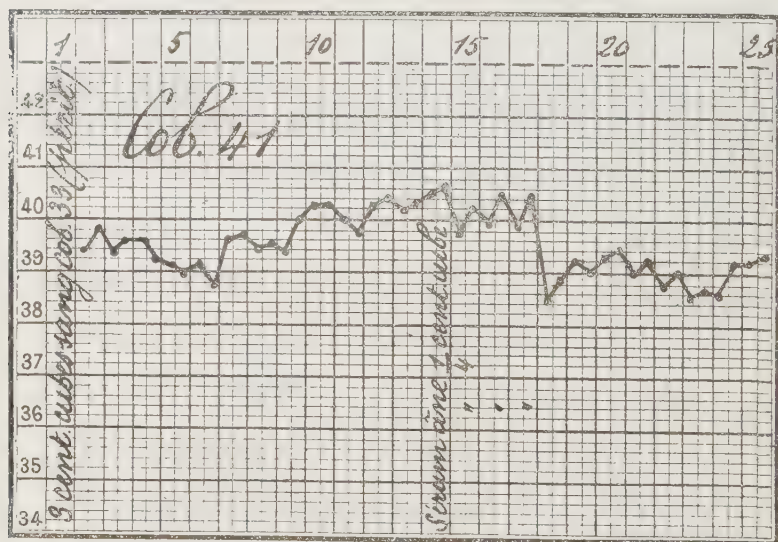 1 5 10 15 20 25
42
41
40
39
38
37
36
35
34
Cob. 41
3 cent. cubes sang Cob 33
Sérum âne 1 cent. cube
4
" " "